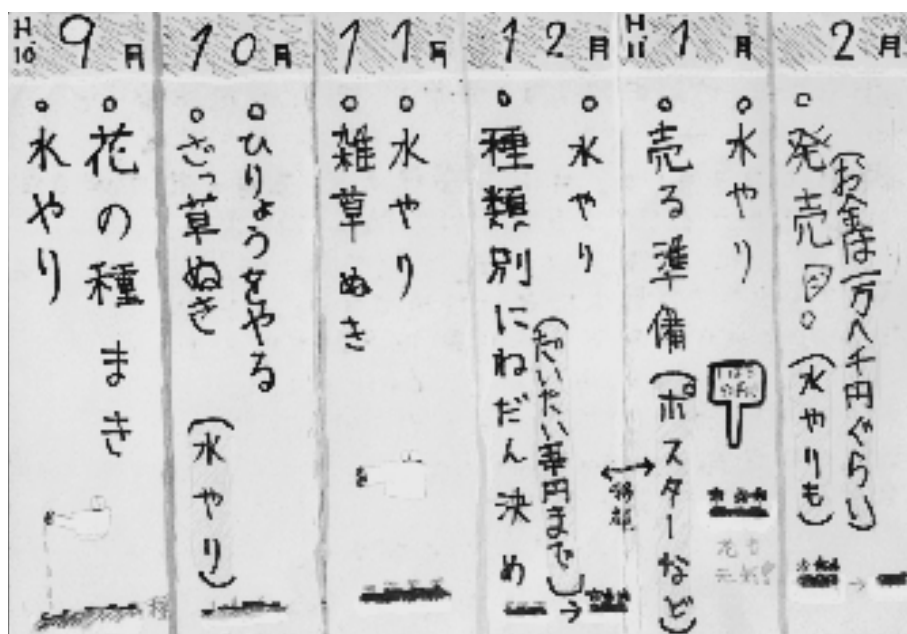 H.10 9月
○花の種まき
○水やり
10月
○ひりょうをやる
○ざっ草ぬき(水やり)
11月
○水やり
○雑草ぬき
12月
○水やり
○種類別にねだん決め
円まで)
H.11 1月
○水やり
○売る準備(ポスターなど)
2月
(お金は一万八千円ぐらい)
○発売日。(水やりも)